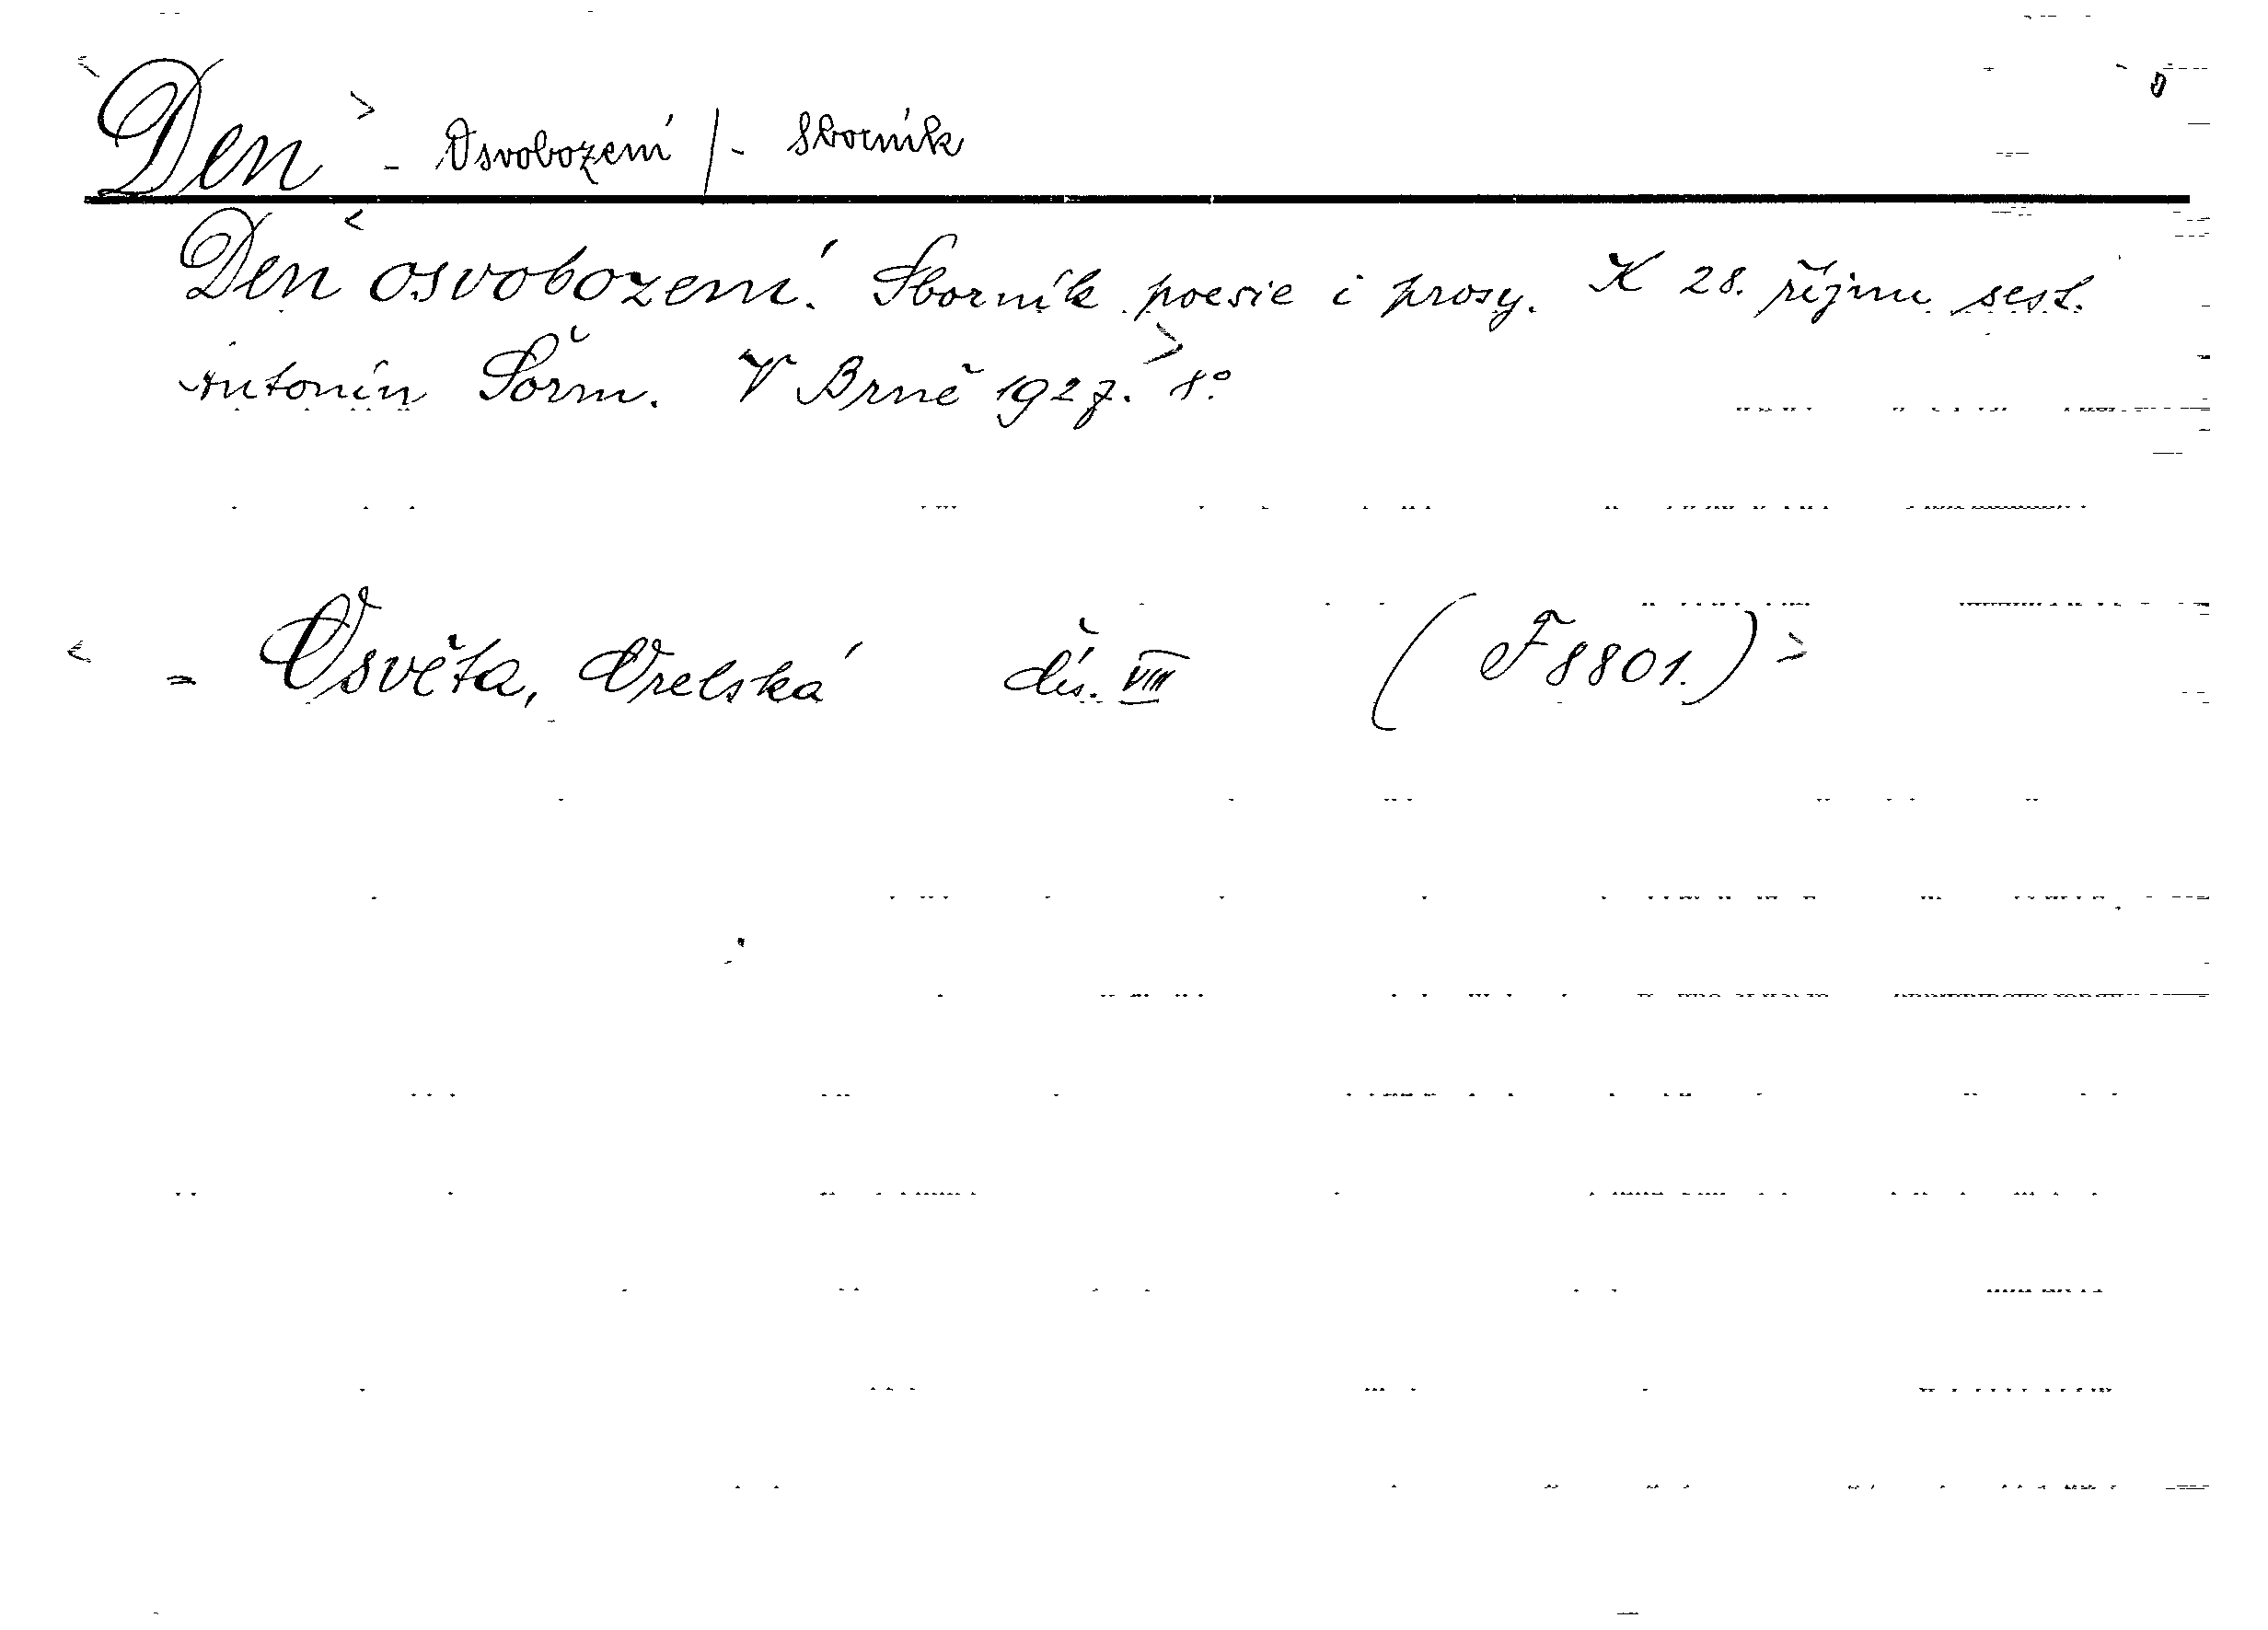 Den - Osvobození / - Sborník
Den osvobození. Sborník poesie i prosy. K 28. říjnu sest.
Antonín Šorm. V Brně 1927. 8°
= Osvěta, Orelská čís. VIII (F 8801.)